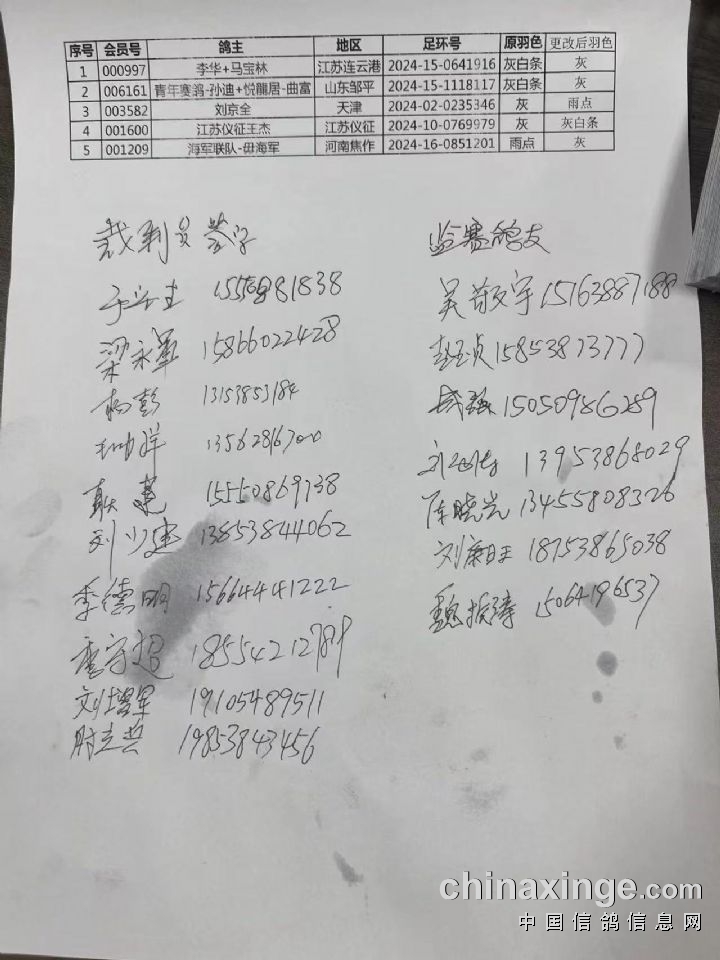 序号 会员号 鸽主 地区 足环号 原羽色 更改后羽色
1 000997 李华+马宝林 江苏连云港 2024-15-0641916 灰白条 灰
2 006161 青年赛鸽-孙迪+悦龍居-曲富 山东邹平 2024-15-1118117 灰白条 灰
3 003582 刘京全 天津 2024-02-0235346 灰 雨点
4 001600 江苏仪征王杰 江苏仪征 2024-10-0769979 灰 灰白条
5 001209 海军联队-毋海军 河南焦作 2024-16-0851201 雨点 灰
裁判员签字
梁永军 15866022428
杨彭 13153853184
祥
耿建 15550869738
刘少建 13853844062
季德明 15664441222
唐守超
刘增军 19105489511
时立 19853843456
监赛鸽友
吴敬宇 15163887188
贞 15853873777
成强 15050986289
刘 13953868029
陈晓光 13455808326
刘康旺 18753865038
魏振涛 15064196537
chinaxinge.com
中国信鸽信息网